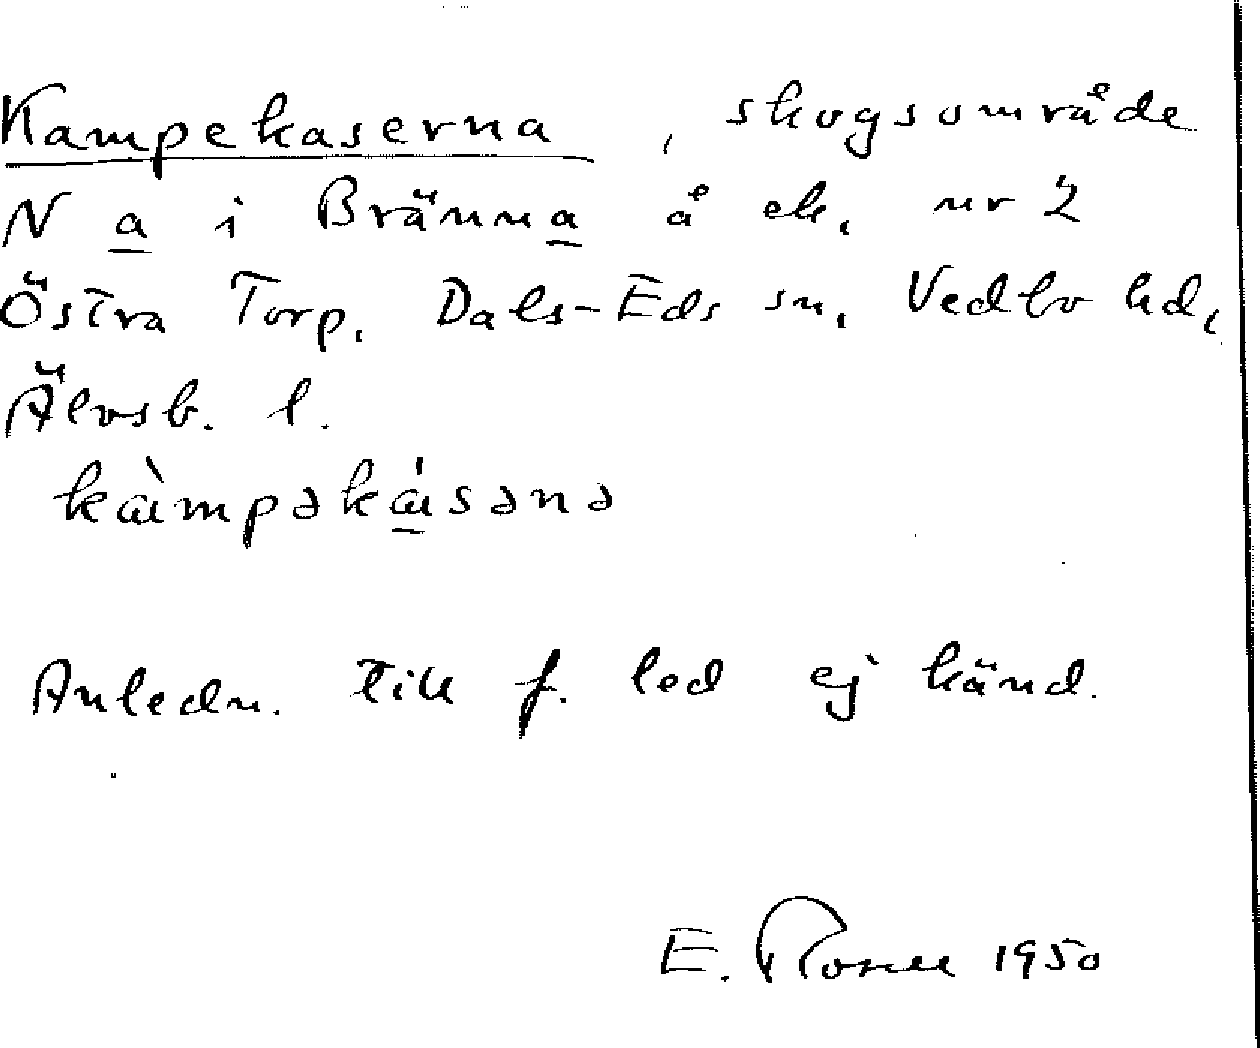 Kampekaserna, skogsområde
N a i Bränna å ek. nr 2
Östra Torp, Dals-Eds sn, Vedbo hd,
Älvsb. l.
Anledn. till f. led ej känd.
E. 1950